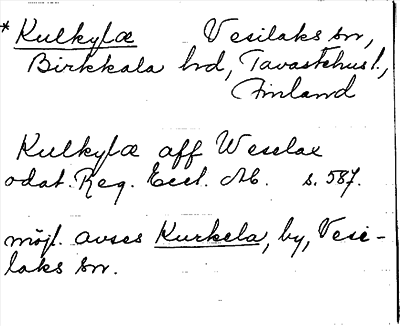 * Kulkylæ Vesilaks sn,
Birkkala hd, Tavastehus l.,
Finland
Kulkylæ aff Weselax
odat. Reg. Eccl. Ab. s. 587.
möjl. avses Kurkela, by, Vesi-
laks sn.